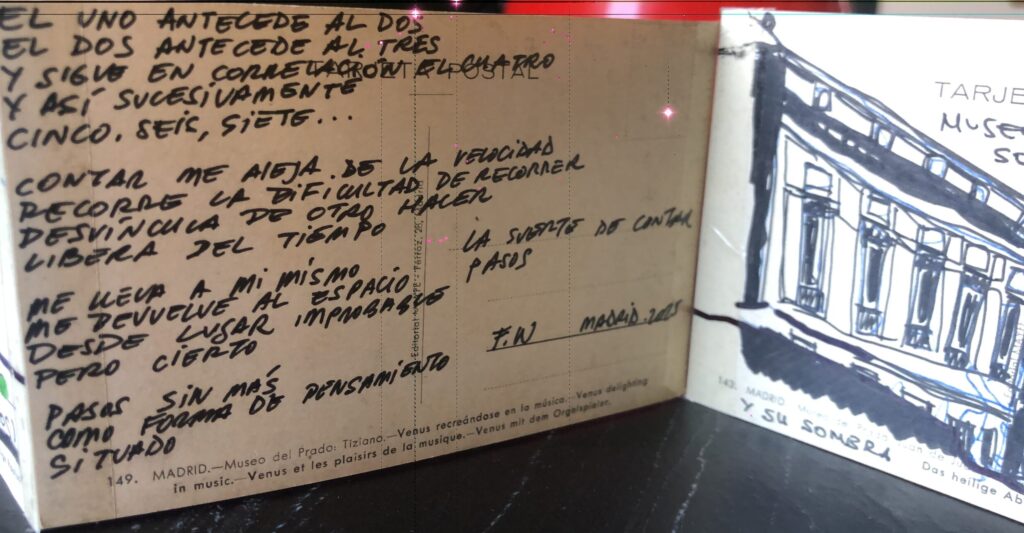 EL UNO ANTECEDE AL DOS
EL DOS ANTECEDE AL TRES
Y SIGUE EN CORRELACIÓN EL CUATRO
Y ASÍ SUCESIVAMENTE
CINCO. SEIS, SIETE...
TARJETA POSTAL
CONTAR ME ALEJA DE LA VELOCIDAD
RECORRE LA DIFICULTAD DE RECORRER
DESVINCULA DE OTRO HACER
LIBERA DEL TIEMPO
ME LLEVA A MI MISMO
ME DEVUELVE AL ESPACIO
DESDE LUGAR IMPROBABLE
PERO CIERTO
PASOS SIN MÁS
COMO FORMA DE PENSAMIENTO
SITUADO
LA SUERTE DE CONTAR
PASOS
F.W MADRID.2025
149. MADRID.—Museo del Prado: Tiziano.—Venus recreándose en la música.—Venus delighting
in music.—Venus et les plaisirs de la musique.—Venus mit dem Orgelspieler.
TARJE
MUSE
143. MADRID
Y SU SOMBRA
Das heilige Ab